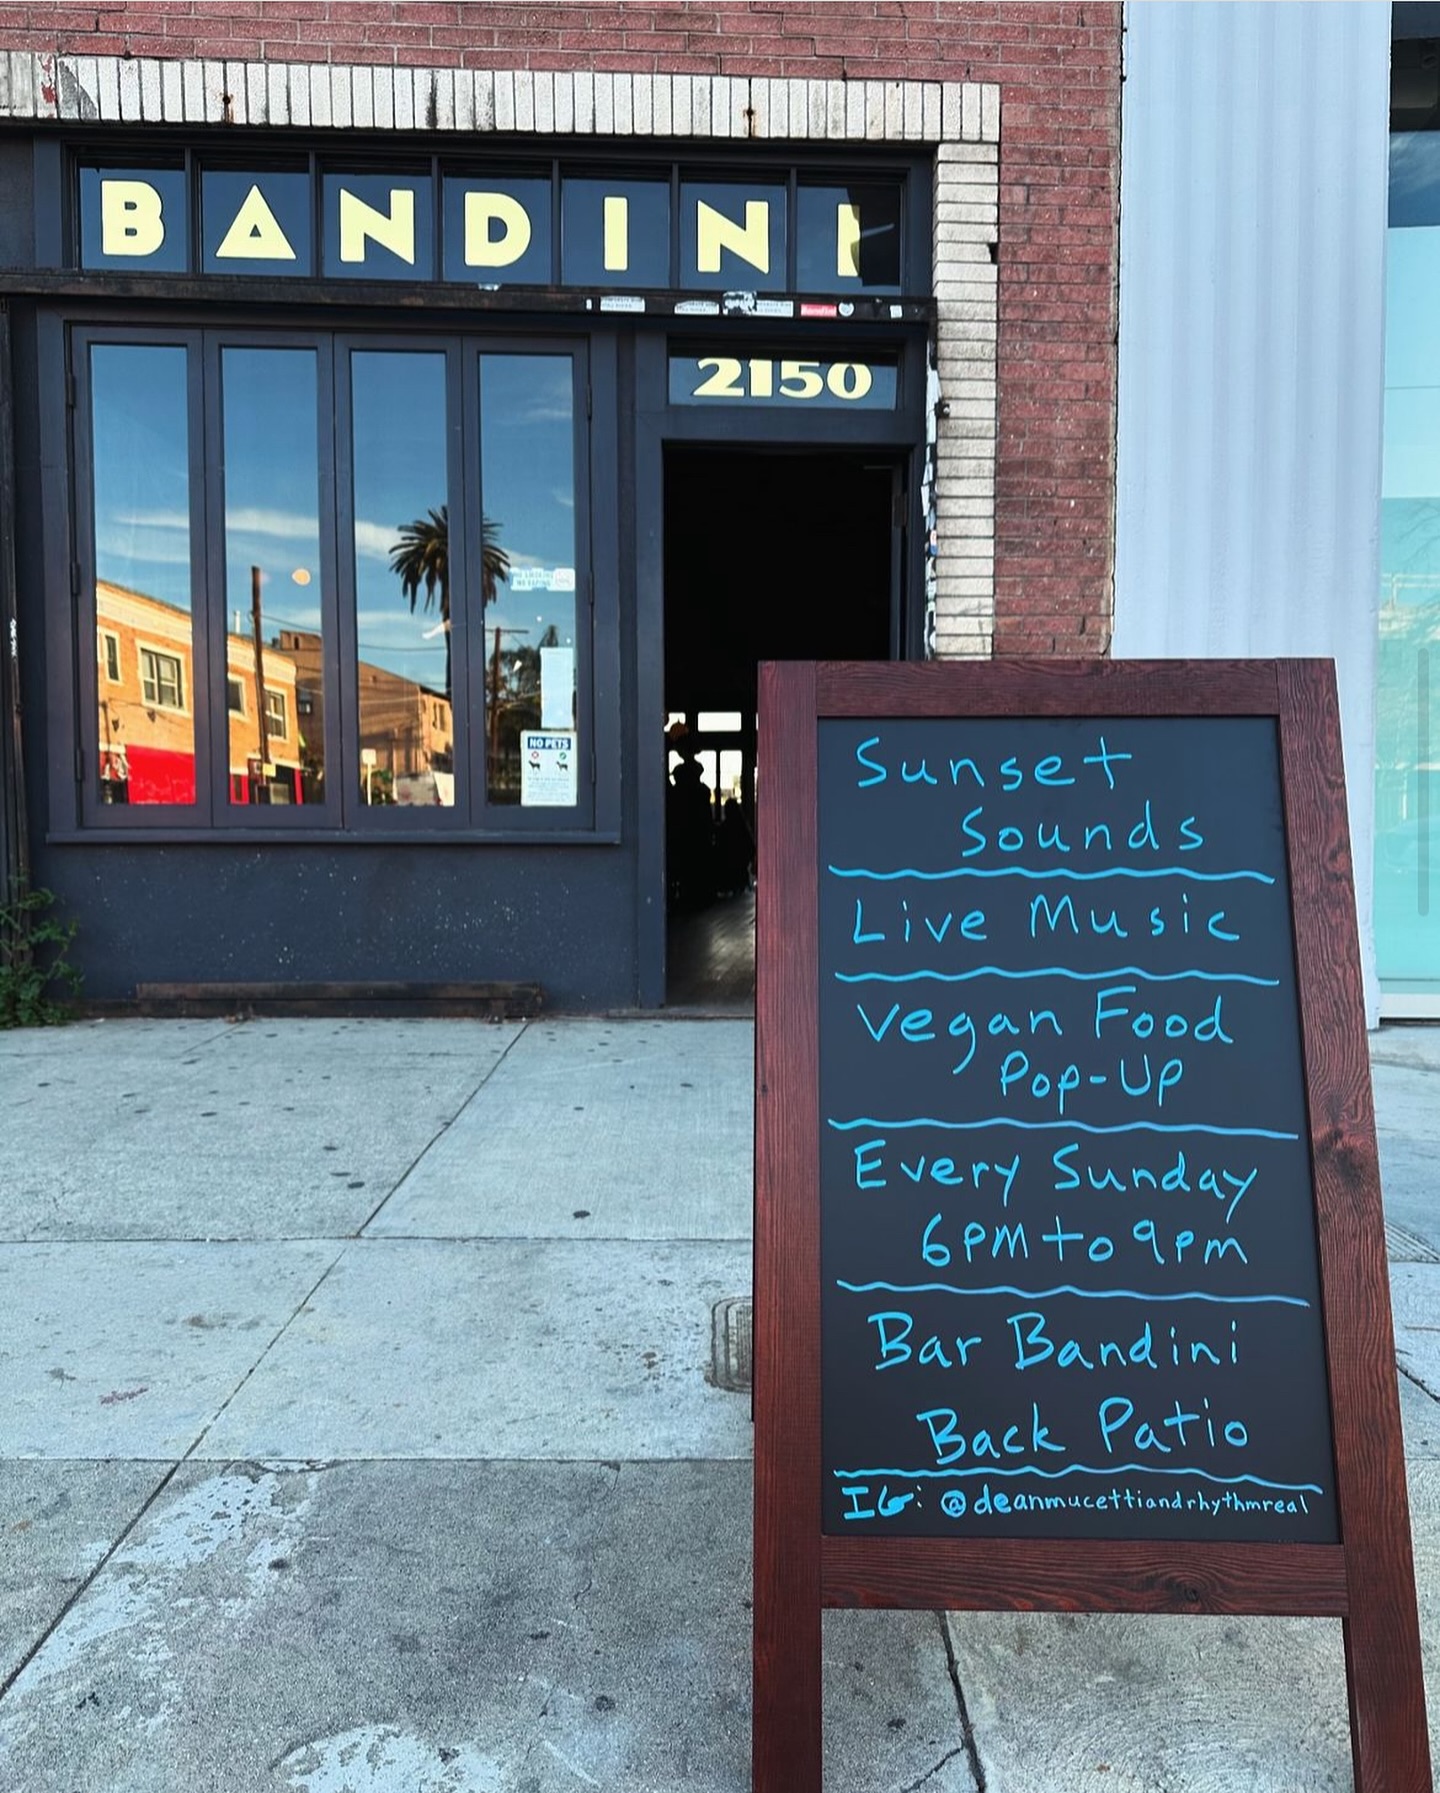 BANDINI
2150
NO PETS
Sunset
Sounds
Live Music
Vegan Food
Pop-Up
Every Sunday
6PM to 9PM
Bar Bandini
Back Patio
IG: @deanmucettiandrhythmreal